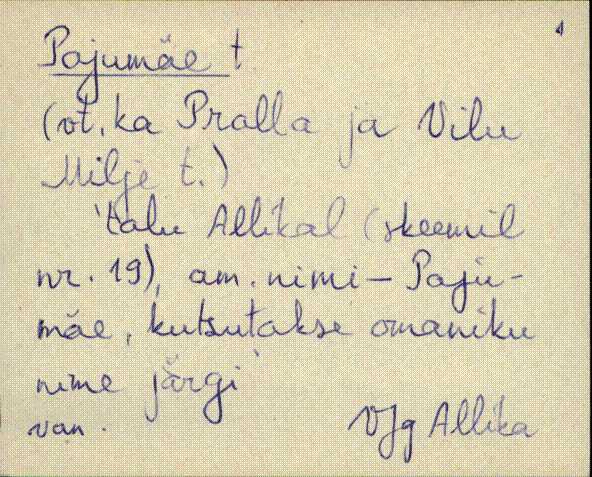 4
Pajumäe t.
(vt. ka Pralla ja Vilu
Milje t.)
'talu Allikal (skeemil
nr. 19), am. nimi – Paju-
mäe, kutsutakse omaniku
nime järgi'
van.
VJg Allika